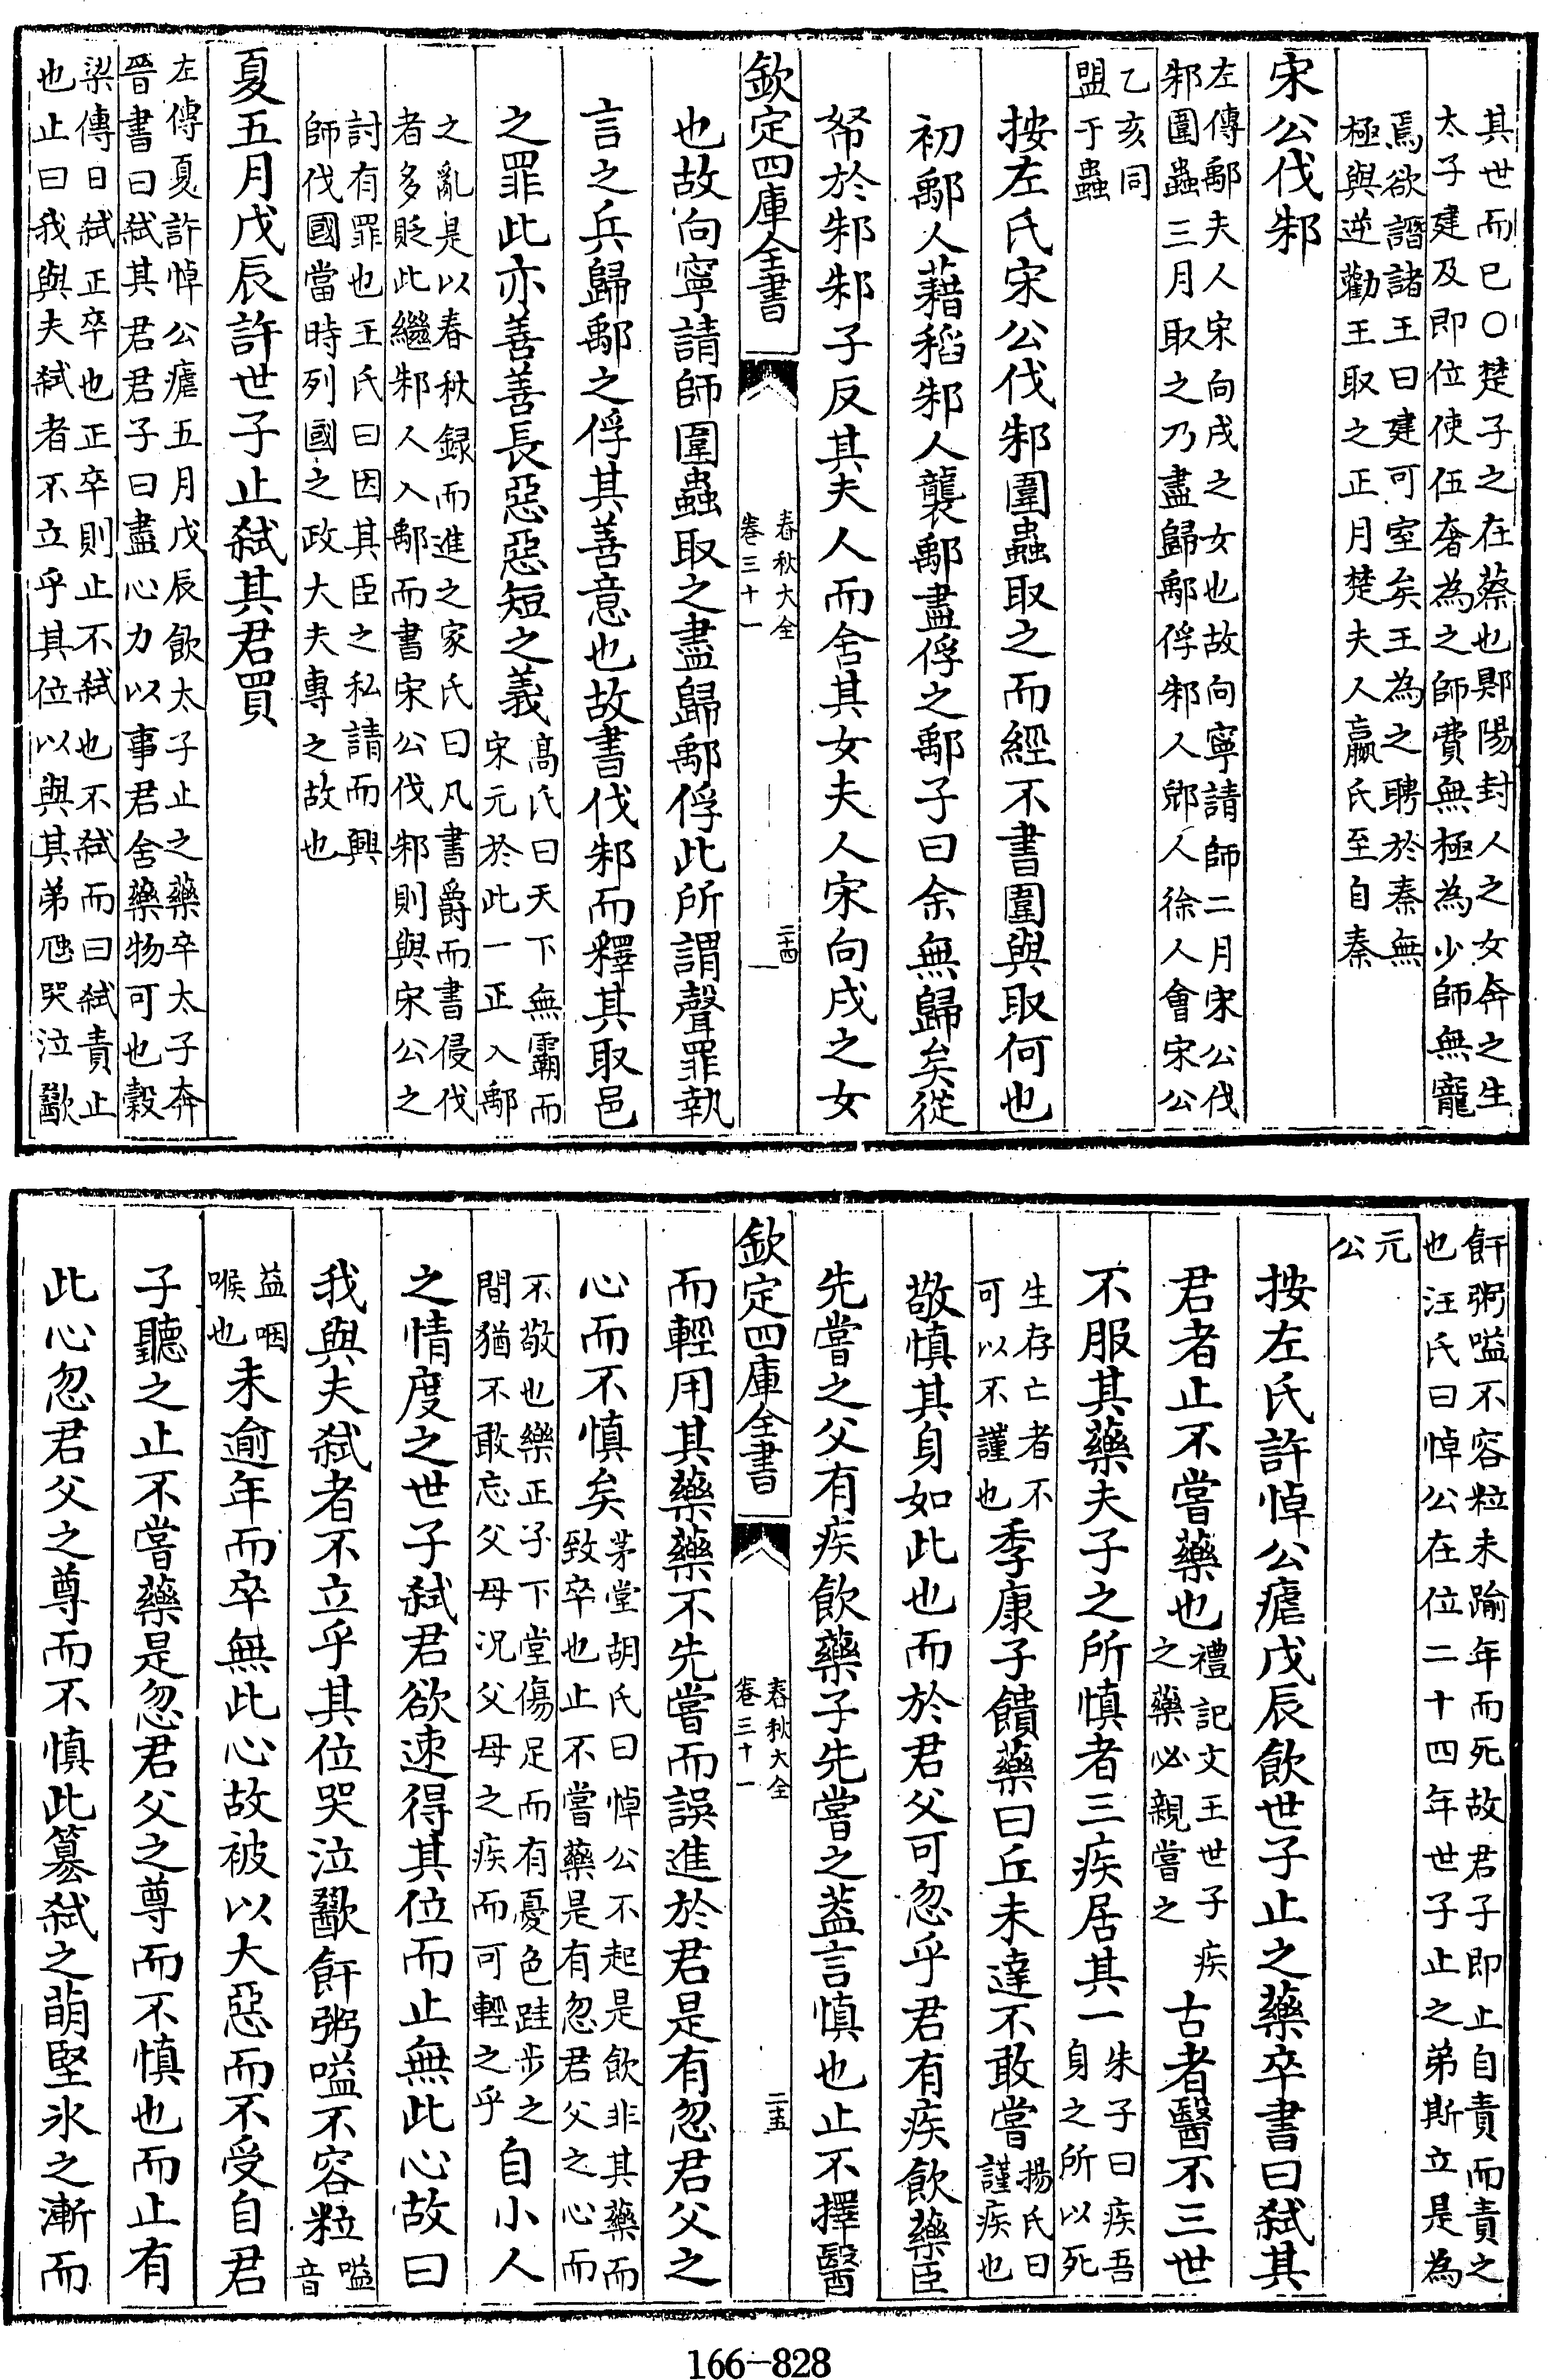 其世而已○楚子之在蔡也郹陽封人之女奔之生
太子建及即位使伍奢為之師費無極為少師無寵
焉欲譖諸王曰建可室矣王為之聘於秦無
極與逆勸王取之正月楚夫人嬴氏至自秦
宋公伐邾
左傳鄅夫人宋向戌之女也故向寧請師二月宋公伐
邾圍蟲三月取之乃盡歸鄅俘邾人郳人徐人會宋公
乙亥同
盟于蟲
按左氏宋公伐邾圍蟲取之而經不書圍與取何也
初鄅人藉稻邾人襲鄅盡俘之鄅子曰余無歸矣從
帑於邾邾子反其夫人而舍其女夫人宋向戌之女
欽定四庫全書
春秋大全
卷三十一
二十四
也故向寧請師圍蟲取之盡歸鄅俘此所謂聲罪執
言之兵歸鄅之俘其善意也故書伐邾而釋其取邑
之罪此亦善善長惡惡短之義
髙氏曰天下無霸而
宋元於此一正入鄅
之亂是以春秋録而進之家氏曰凡書爵而書侵伐
者多貶此繼邾人入鄅而書宋公伐邾則與宋公之
討有罪也王氏曰因其臣之私請而興
師伐國當時列國之政大夫專之故也
夏五月戊辰許世子止弑其君買
左傳夏許悼公瘧五月戊辰飲太子止之藥卒太子奔
晉書曰弑其君君子曰盡心力以事君舍藥物可也糓
梁傳曰弑正卒也正卒則止不弑也不弑而曰弑責止
也止曰我與夫弑者不立乎其位以與其弟虺哭泣歠
飦粥嗌不容粒未踰年而死故君子即止自責而責之
也汪氏曰悼公在位二十四年世子止之弟斯立是為
元
公
按左氏許悼公瘧戊辰飲世子止之藥卒書曰弑其
君者止不嘗藥也
禮記文王世子疾
之藥必親嘗之
古者醫不三世
不服其藥夫子之所慎者三疾居其一
朱子曰疾吾
身之所以死
生存亡者不
可以不謹也
季康子饋藥曰丘未達不敢嘗
揚氏曰
謹疾也
敬慎其身如此也而於君父可忽乎君有疾飲藥臣
先嘗之父有疾飲藥子先嘗之葢言慎也止不擇醫
欽定四庫全書
春秋大全
卷三十一
二十五
而輕用其藥藥不先嘗而誤進於君是有忽君父之
心而不慎矣
茅堂胡氏曰悼公不起是飲非其藥而
致卒也止不嘗藥是有忽君父之心而
不敬也樂正子下堂傷足而有憂色跬步之
間猶不敢忘父母况父母之疾而可輕之乎
自小人
之情度之世子弑君欲速得其位而止無此心故曰
我與夫弑者不立乎其位哭泣歠飦粥嗌不容粒
嗌
音
益咽
喉也
未逾年而卒無此心故被以大惡而不受自君
子聽之止不嘗藥是忽君父之尊而不慎也而止有
此心忽君父之尊而不慎此簒弑之萌堅氷之漸而
166-828